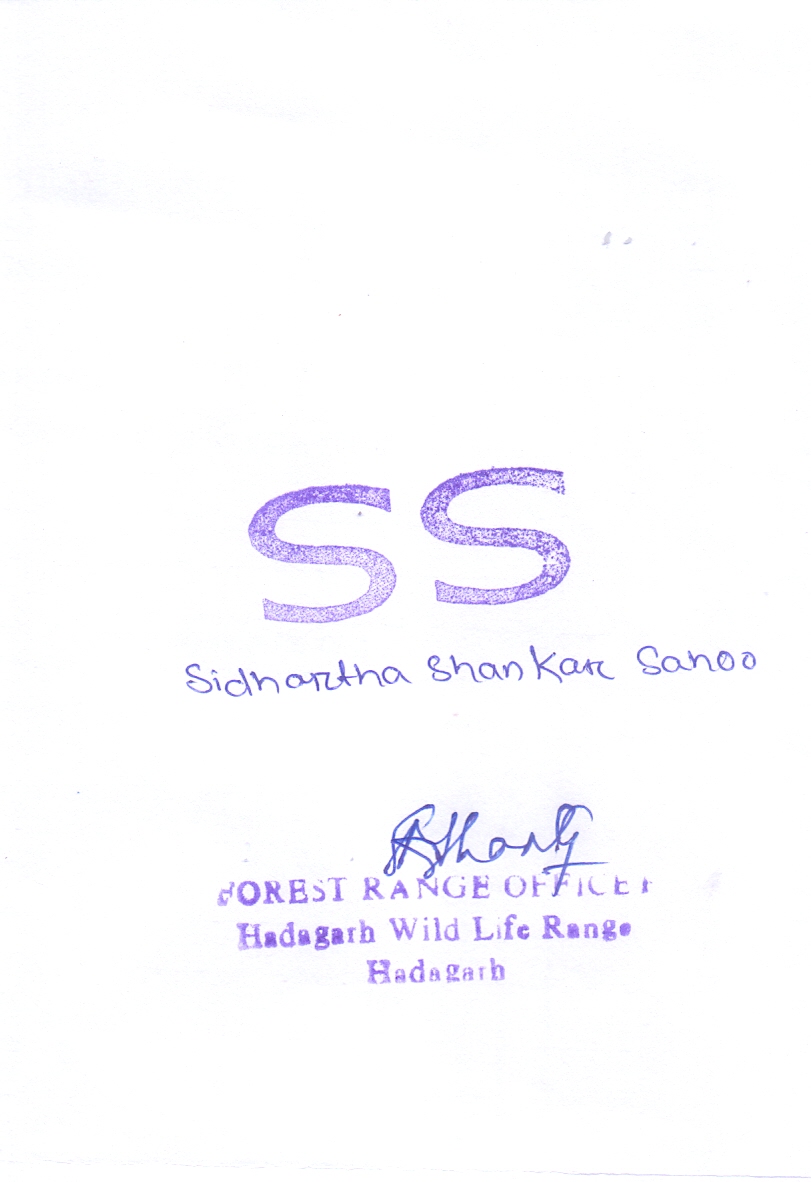 SS
Sidhartha Shankar Sahoo
FOREST RANGE OFFICER
Hadagarh Wild Life Range
Hadagarh